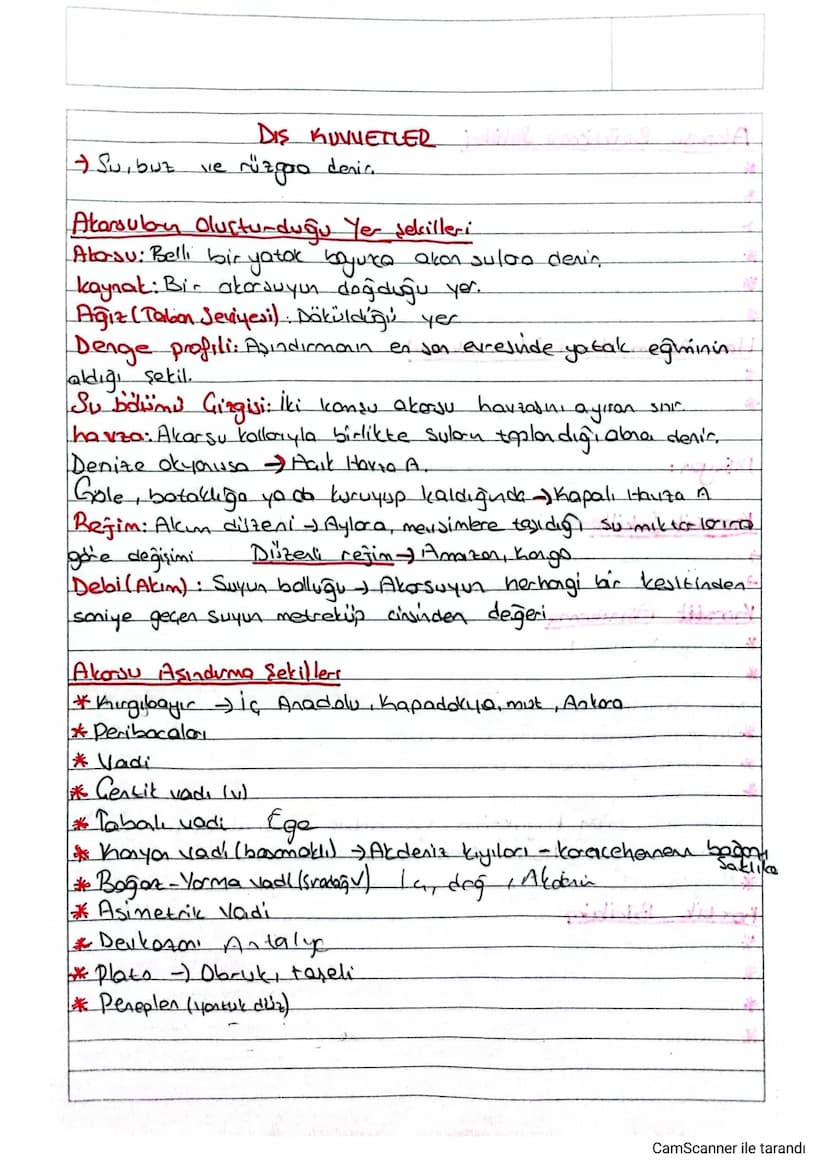 DIŞ KUVVETLER
→ Su, buz ve rüzgara denir.
Akarsuların Oluşturduğu Yer Şekilleri
Akarsu: Belli bir yatak boyunca akan sulara denir.
Kaynak: Bir akarsuyun doğduğu yer.
Ağız (Taban Seviyesi): Döküldüğü yer
Denge profili: Aşındırmanın en son evresinde yatak eğiminin
aldığı şekil.
Su bölümü Çizgisi: İki komşu akarsu havzasını ayıran sınır.
havza: Akarsu kollarıyla birlikte suların toplandığı alana denir.
Denize okyanusa → Açık Havza A.
Göle, bataklığa ya da kuruyup kaldığında → Kapalı Havza A
Rejim: Akım düzeni → Aylara, mevsimlere taşıdığı su miktarlarına
göre değişimi Düzenli rejim → Amazon, Kongo
Debi (Akım): Suyun bolluğu → Akarsuyun herhangi bir kesitinden
saniye geçen suyun metreküp cinsinden değeri
Akarsu Aşındırma Şekilleri
* Kırgıbayır → İç Anadolu, Kapadokya, mut, Ankara
* Peribacaları
* Vadi
* Çentik vadi (v)
* Tabanlı vadi Ege
* Kanyon vadi (basamaklı) → Akdeniz kıyıları - karacehennem boğazı
saklıka
* Boğaz - Yarma vadi Iç, doğ, Akdeniz
* Asimetrik Vadi
* Devkazanı Antalya
* Plato → Obruk, taşeli
* Peneplen (yontuk düz)
CamScanner ile tarandı